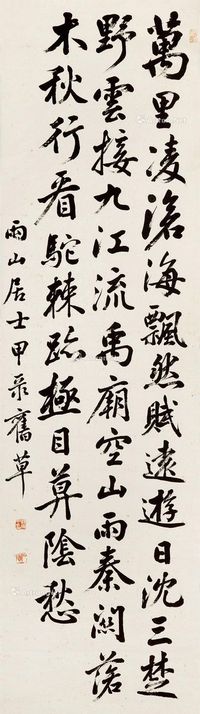 萬里凌滄海飄然賦遠遊日沈三楚
野雲接九江流禹廟空山雨秦關落
木秋行看駝棘跡極目算陰愁
雨山居士甲录舊草